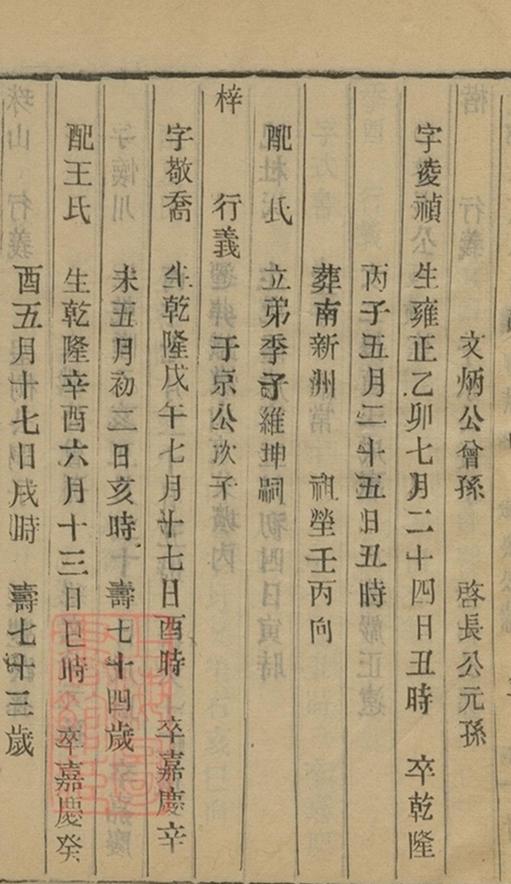 文炳公曾孫 啓長公元孫
字夌禎 生雍正乙卯七月二十四日丑時 卒乾隆
丙子五月二十五日丑時
葬南新洲 祖塋壬丙向
配 氏 立弟季子維坤嗣
梓 行義 于京公次子
字敬喬 生乾隆戊午七月廿七日酉時 卒嘉慶辛
未五月初二日亥時 壽七十四歲
配王氏 生乾隆辛酉六月十三日巳時 卒嘉慶癸
酉五月十七日戌時 壽七十三歲